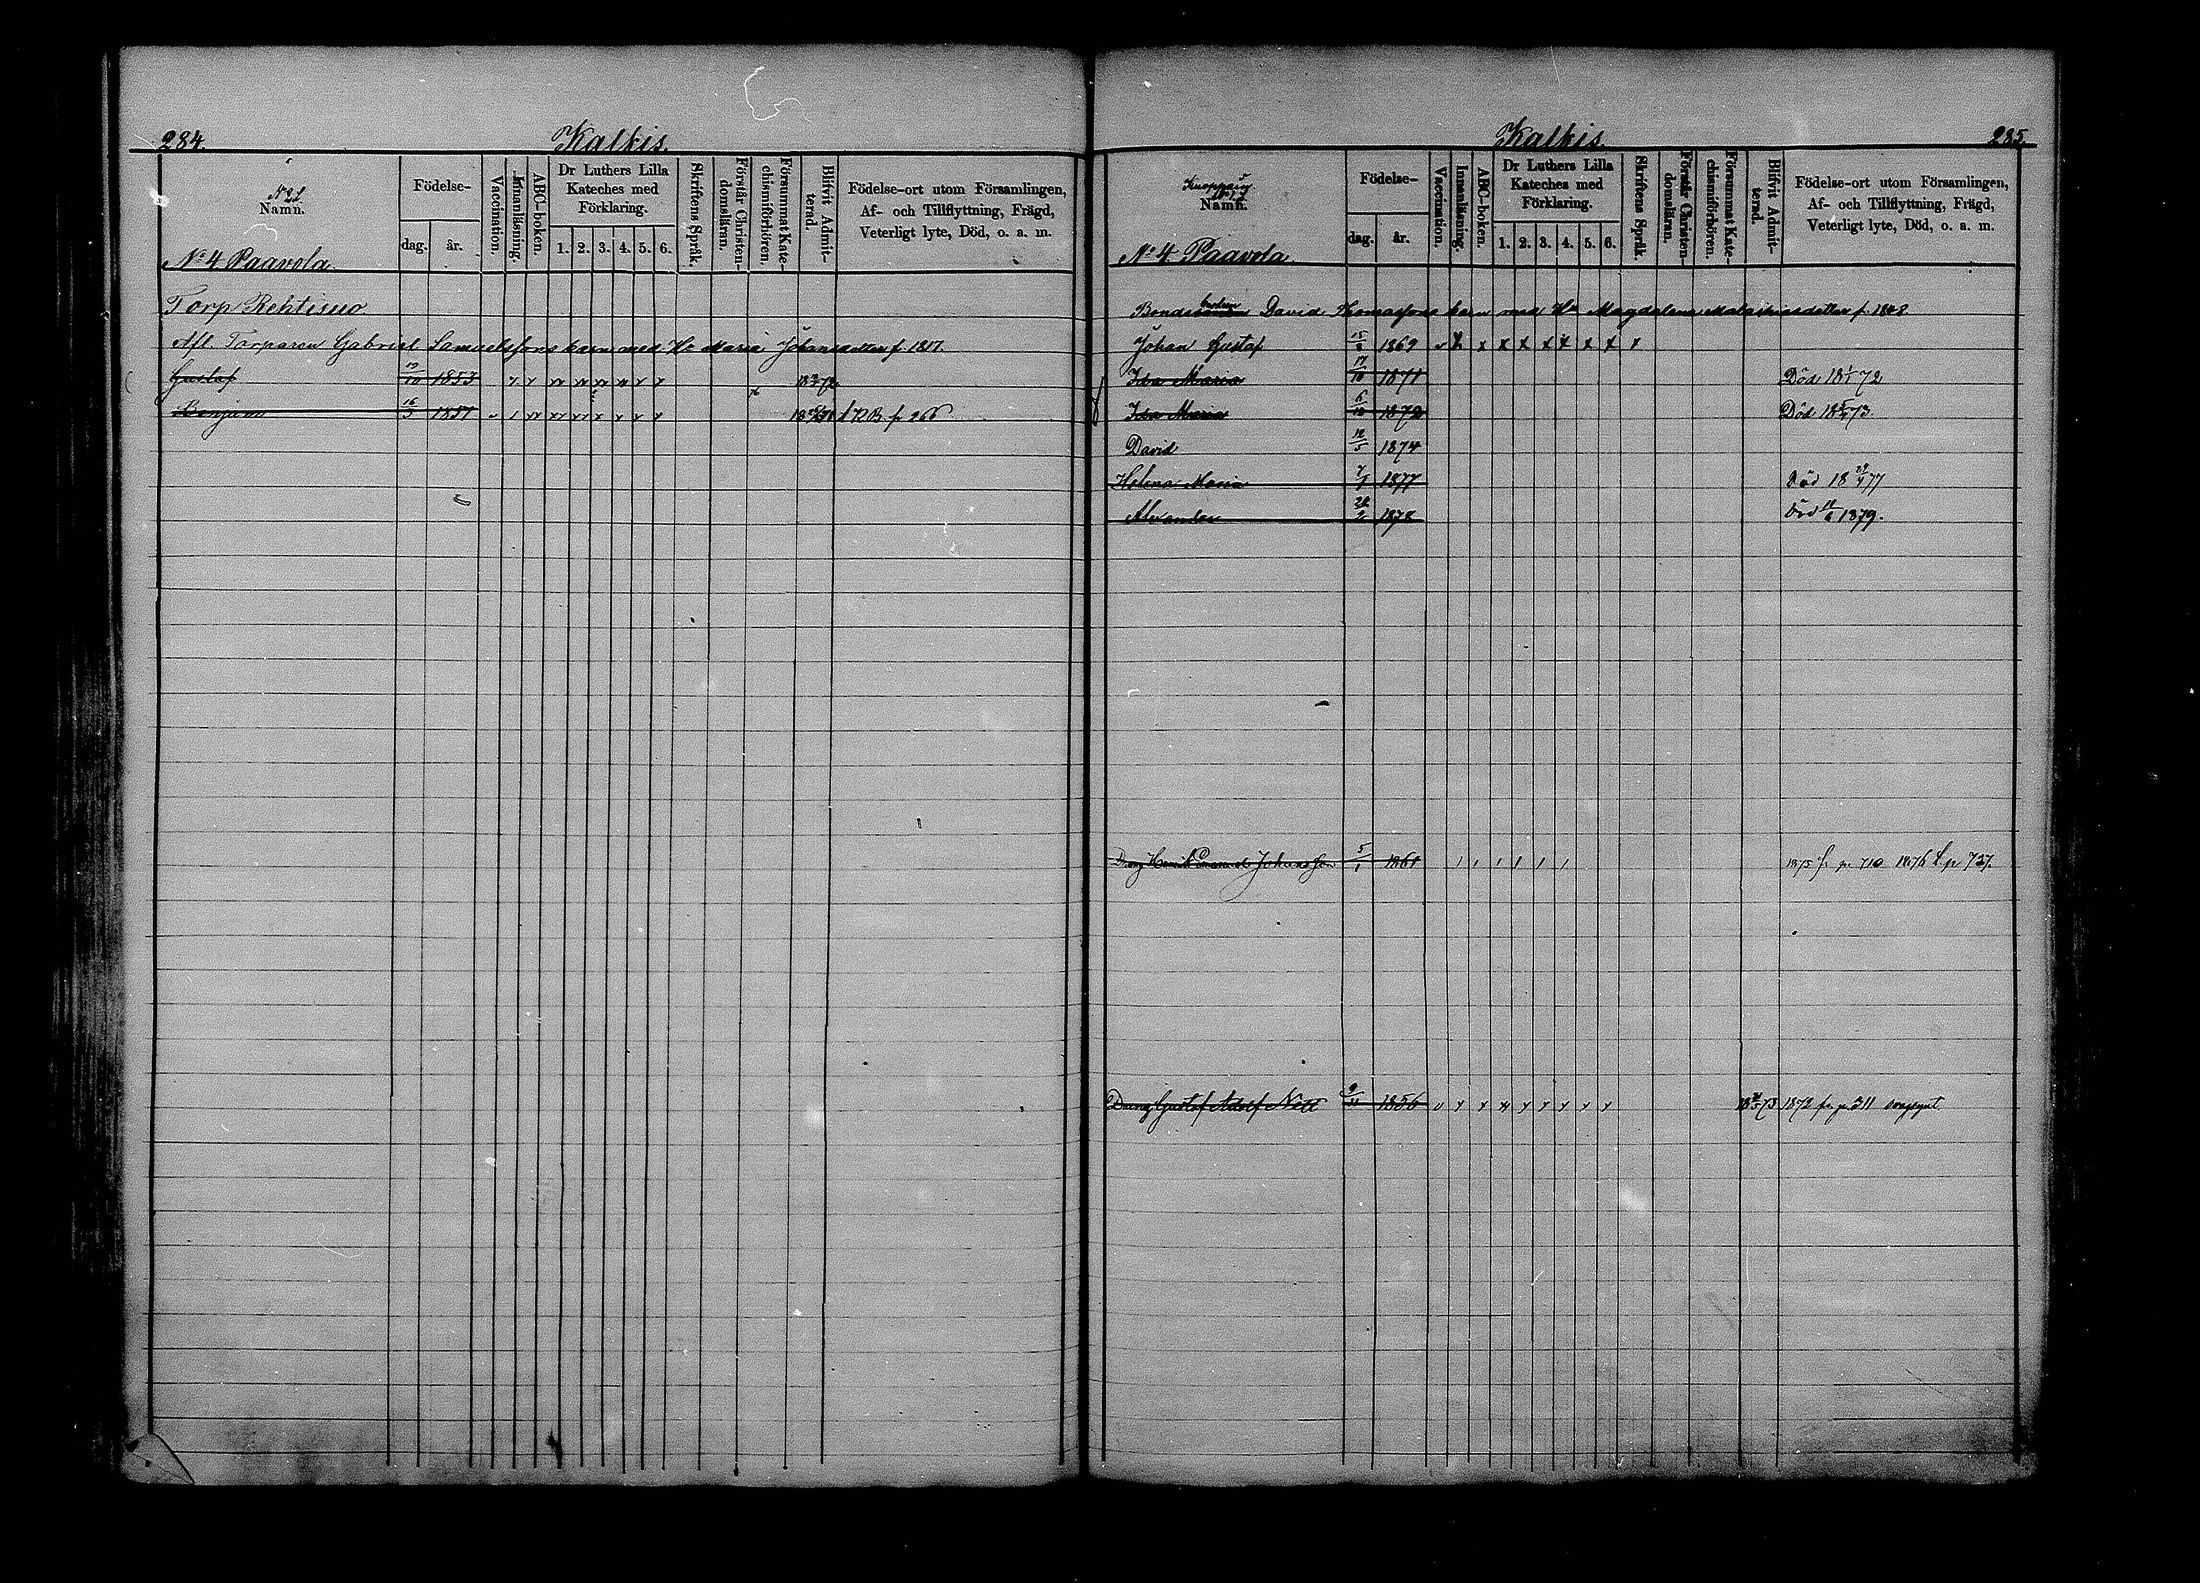 284.
Kalkis.
Namn.
Födelse-
dag.
år.
Vaccination.
Innanläsning.
ABC-boken.
Dr Luthers Lilla
Kateches med
Förklaring.
1. 2. 3. 4. 5. 6.
Skriftens Språk.
Förstår Christen-
domsläran.
Försummat Kate-
chismiförhören.
Blifvit Admit-
terad.
Födelse-ort utom Församlingen,
Af- och Tillflyttning, Frägd,
Veterligt lyte, Död, o. a. m.
No 4 Paavola.
Torp Rehtisuo
Afl. Torparen Gabriel Samuelsfons barn med Ha Maria Johansdotter f. 1817.
Gustaf 19/10 1853
Benjam 16/3 1851
285.
Kalkis.
Namn.
Födelse-
dag.
år.
Vaccination.
Innanläsning.
ABC-boken.
Dr Luthers Lilla
Kateches med
Förklaring.
1. 2. 3. 4. 5. 6.
Skriftens Språk.
Förstår Christen-
domsläran.
Försummat Kate-
chismiförhören.
Blifvit Admit-
terad.
Födelse-ort utom Församlingen,
Af- och Tillflyttning, Frägd,
Veterligt lyte, Död, o. a. m.
No 4. Paavola.
David Thomasfons barn med Ha Magdalena Malakiasdotter f. 1848
Johan Gustaf 1869
Ida Maria 17/10 1871 Död 18 1/1 72
Ida Maria 1872 Död 18 73.
David 12/5 1874
Helena Maria 7/1 1877 Död 18 77
Alexander 28/2 1878 Död 1879.
Dreng Henrik Emanuel Johansson 5/1 1861 1875 fr p. 710 1876 t. p. 737.
Dreng Gustaf Adolf Nett 9/11 1856 73 1872 fr. p. 311